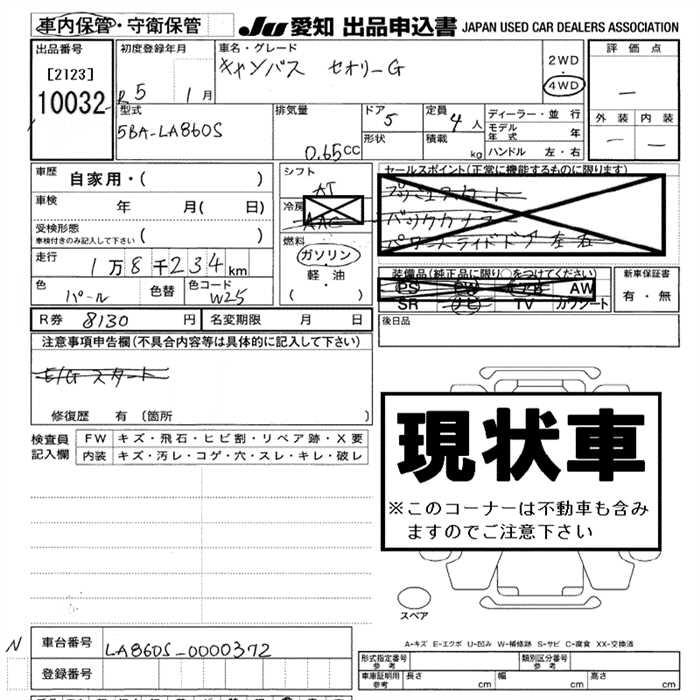 車内保管・守衛保管
JU 愛知 出品申込書 JAPAN USED CAR DEALERS ASSOCIATION
出品番号 初度登録年月 車名・グレード 評価点
[2123] R5 1月 キャンバス セオリーG 2WD 4WD —
10032
型式 排気量 ドア 5 定員 4人 ディーラー・並行 外装 内装
5BA-LA860S 0.65CC 形状 積載 kg モデル年式 年 — —
ハンドル 左・右
車歴 自家用・( ) シフト AT セールスポイント(正常に機能するものに限ります)
車検 年 月( 日) 冷房 AAC
受検形態 車検付きのみ記入して下さい ( ) バックカメラ
燃料 パワースライドドア 左右
走行 1万8千234km ガソリン・軽・油 ( )
装備品(純正品に限り○をつけてください) 新車保証書
PS PW AW 有・無
SR ナビ TV カワシート
色 パール 色替 色コード W25
R券 8130円 名変期限 月 日 後日品
注意事項申告欄(不具合内容等は具体的に記入して下さい)
E/Gスタート
修復歴 有(箇所 )
検査員記入欄 FW キズ・飛石・ヒビ割・リペア跡・X要
内装 キズ・汚レ・コゲ・穴・スレ・キレ・破レ
現状車
※このコーナーは不動車も含み
ますのでご注意下さい
スペア
A-キズ E-エクボ U-凹み W-補修跡 S-サビ C-腐食 XX-交換済
N 車台番号 LA860S-0000372
登録番号
形式指定番号 参考 類別区分番号 参考
車庫証明用 参考 長さ cm 幅 cm 高さ cm